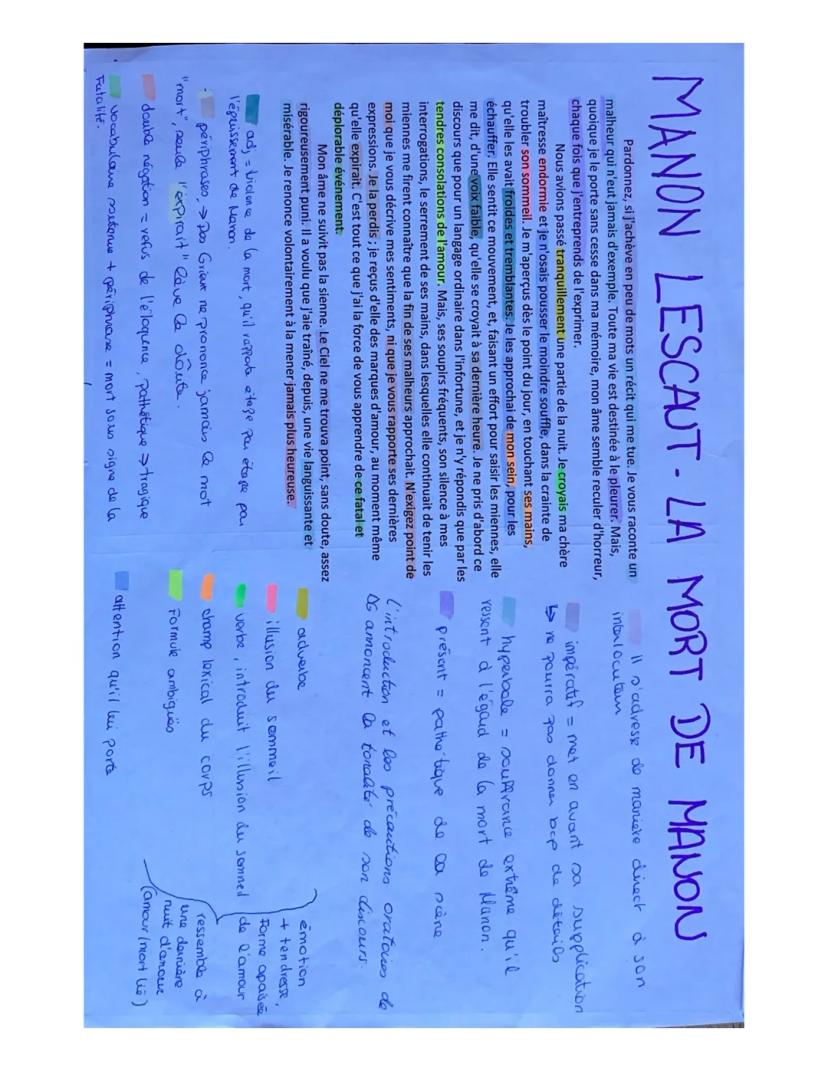 MANON LESCAUT - LA MORT DE MANON
Pardonnez, si j'achève en peu de mots un récit qui me tue. Je vous raconte un
malheur qui n'eut jamais d'exemple. Toute ma vie est destinée à le pleurer. Mais,
quoique je le porte sans cesse dans ma mémoire, mon âme semble reculer d'horreur,
chaque fois que j'entreprends de l'exprimer.
Nous avions passé tranquillement une partie de la nuit. Je croyais ma chère
maîtresse endormie et je n'osais pousser le moindre souffle, dans la crainte de
troubler son sommeil. Je m'aperçus dès le point du jour, en touchant ses mains,
qu'elle les avait froides et tremblantes. Je les approchai de mon sein, pour les
échauffer. Elle sentit ce mouvement, et, faisant un effort pour saisir les miennes, elle
me dit, d'une voix faible, qu'elle se croyait à sa dernière heure. Je ne pris d'abord ce
discours que pour un langage ordinaire dans l'infortune, et je n'y répondis que par les
tendres consolations de l'amour. Mais, ses soupirs fréquents, son silence à mes
interrogations, le serrement de ses mains, dans lesquelles elle continuait de tenir les
miennes me firent connaître que la fin de ses malheurs approchait. N'exigez point de
moi que je vous décrive mes sentiments, ni que je vous rapporte ses dernières
expressions. Je la perdis ; je reçus d'elle des marques d'amour, au moment même
qu'elle expirait. C'est tout ce que j'ai la force de vous apprendre de ce fatal et
déplorable événement.
Mon âme ne suivit pas la sienne. Le Ciel ne me trouva point, sans doute, assez
rigoureusement puni. Il a voulu que j'aie traîné, depuis, une vie languissante et
misérable. Je renonce volontairement à la mener jamais plus heureuse.
adj = violence de la mort, qu'il rapporte étape par étape par
l'épuisement de Manon.
périphrases, → Des Grieux ne prononce jamais le mot
"mort", seule l'"expirait" lève le doute.
double négation = refus de l'éloquence, pathétique → tragique
vocabulaire soutenu + périphrase = mort sous signe de la
Fatalité.
Il s'adresse de manière direct à son
interlocuteur
impératif = met en avant sa supplication
↳ ne pourra pas donner bcp de détails
hyperbole = souffrance extrême qu'il
ressent à l'égard de la mort de Manon.
présent = pathétique de la scène
L'introduction et les précautions oratoires de
DG annoncent la tonalité de son discours.
adverbe
illusion du sommeil
verbe, introduit l'illusion du sommeil
champ lexical du corps
Formule ambigües
attention qu'il lui porte
émotion
+ tendresse,
Forme apaisée
de l'amour
ressemble à
une dernière
nuit d'amour
(amour/mort lié)